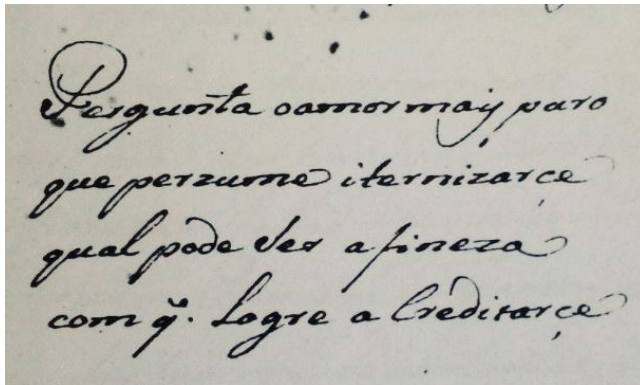 Pergunta oamor maiz puro
que perzume iternizarçe
qual pode ser a fineza
com q̃. Logre a Creditarçe